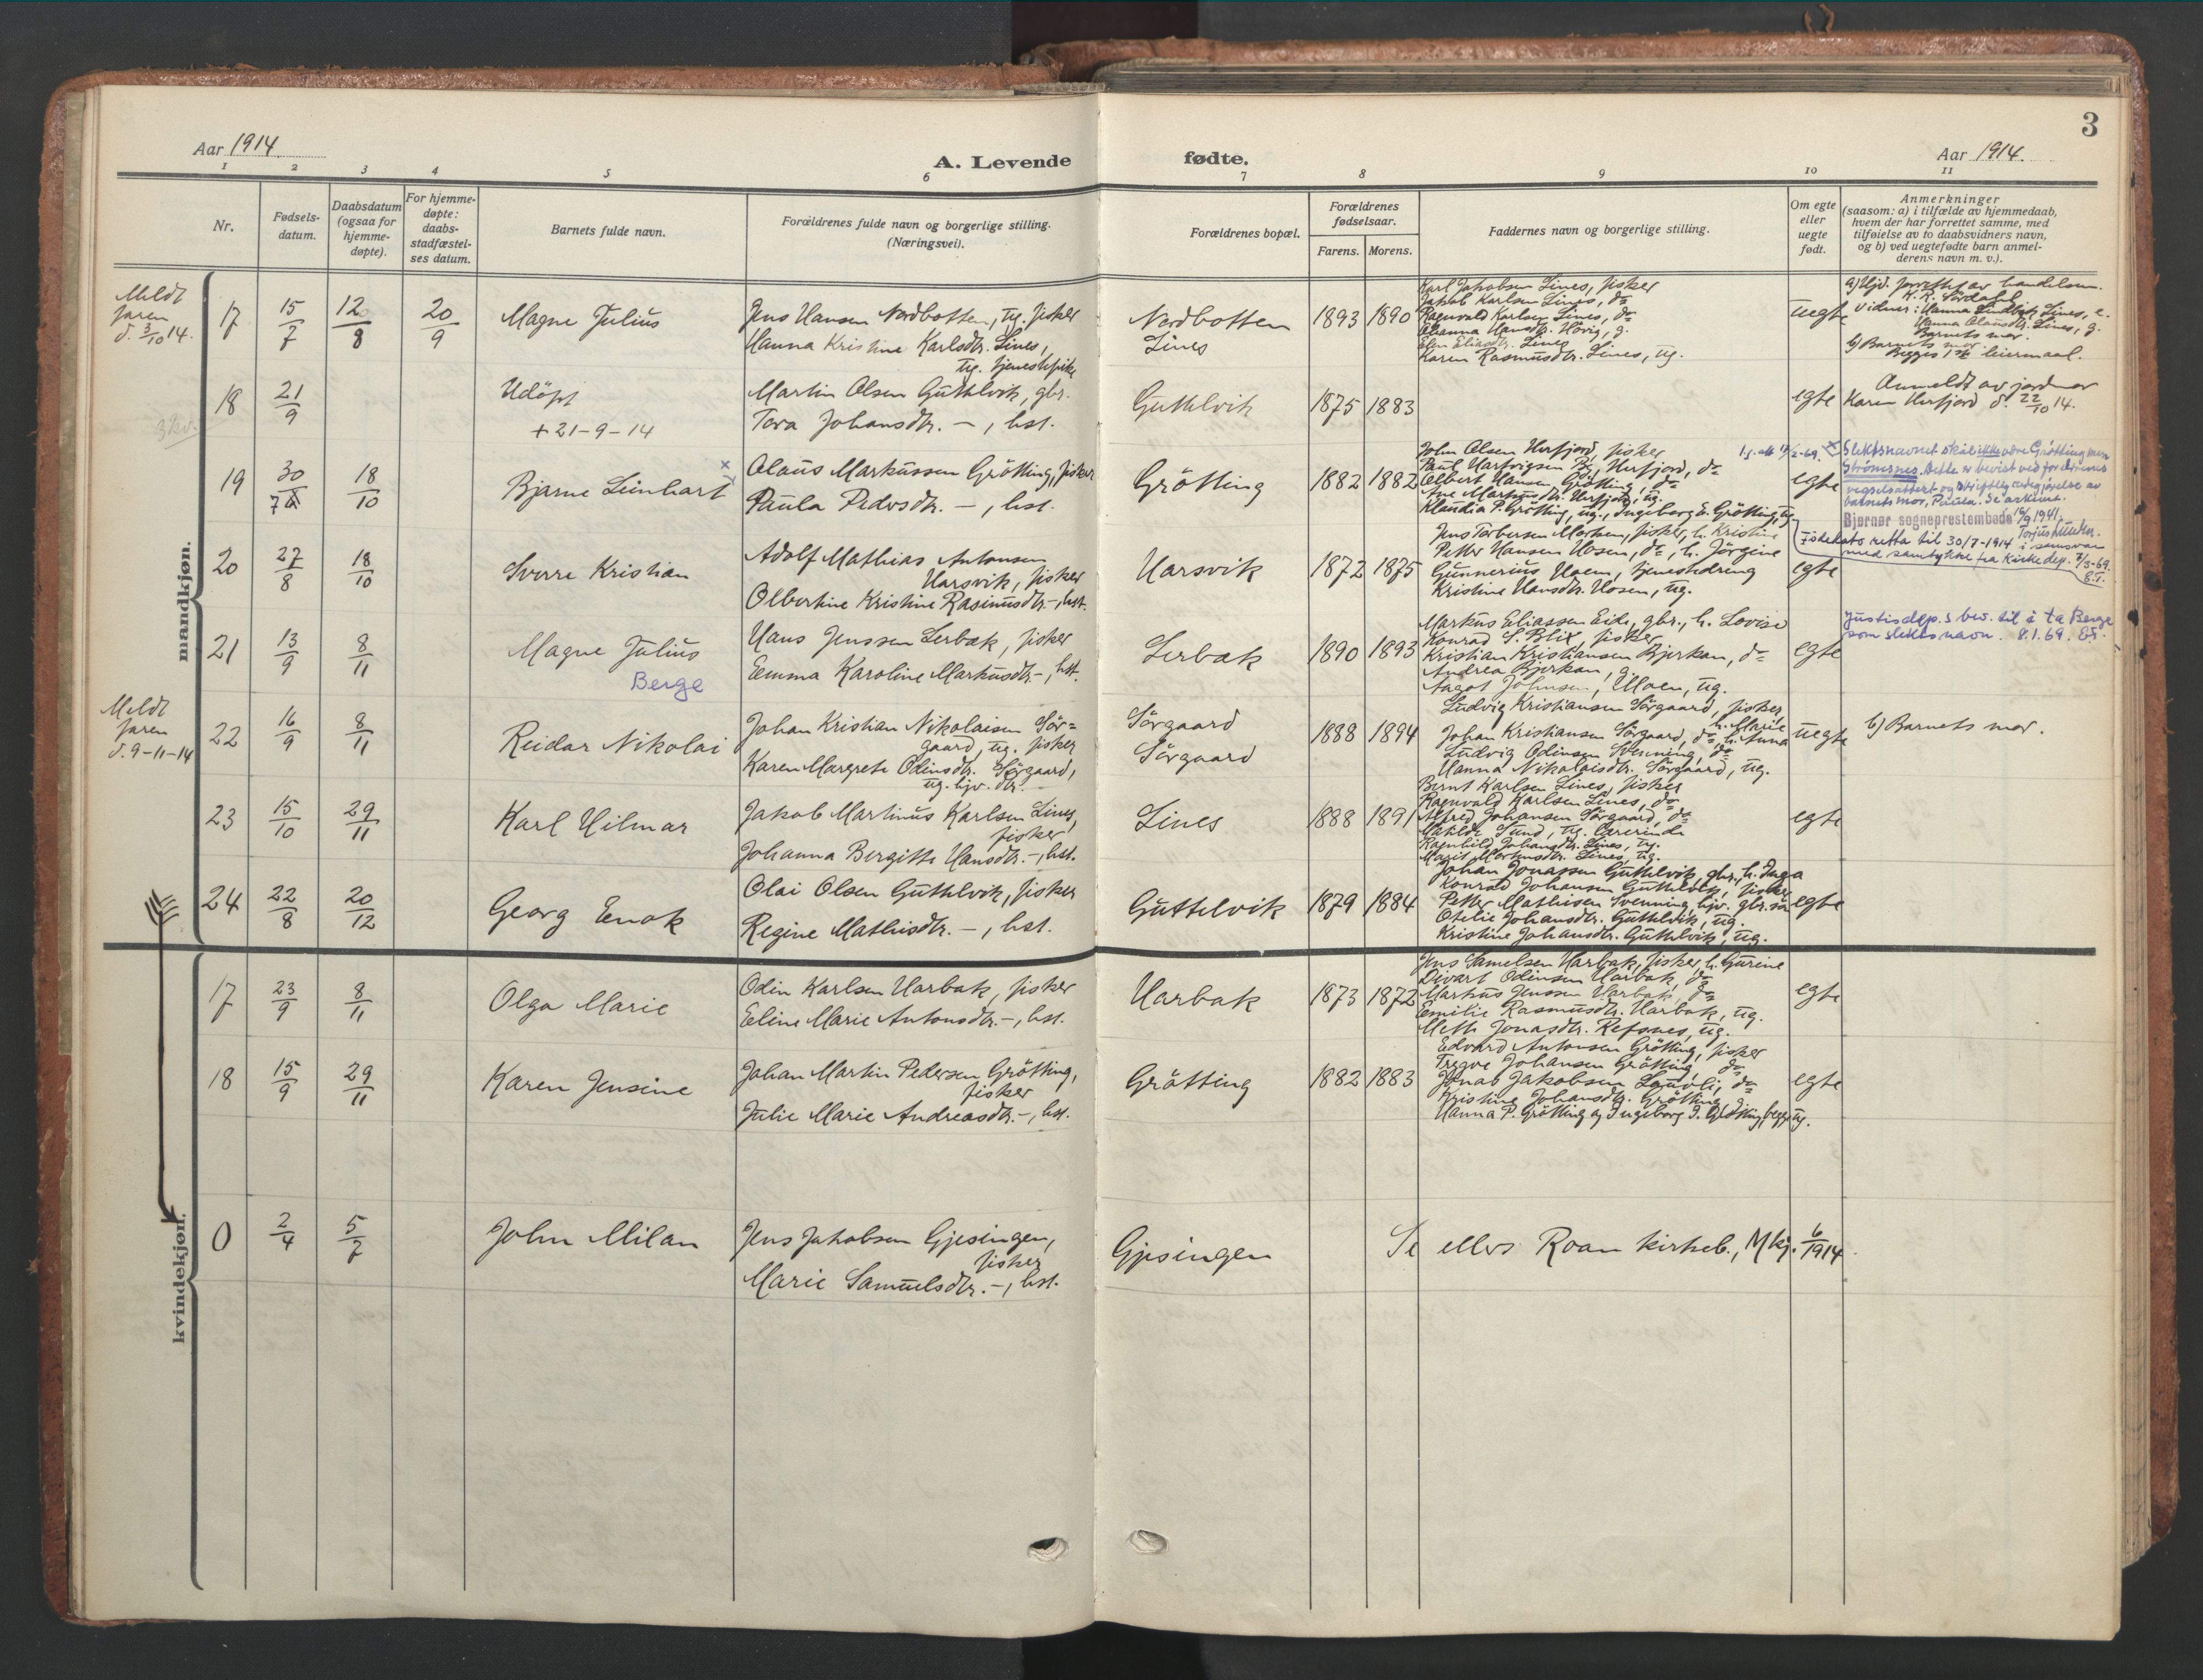 3
Aar 1914.
A. Levende
fødte.
Aar 1914.
1 2 3 4 5 6 7 8 9 10 11
Nr.
Fødsels-
datum.
Daabsdatum
(ogsaa for
hjemme-
døpte).
For hjemme-
døpte:
daabs-
stadfæstel-
ses datum.
Barnets fulde navn.
Forældrenes fulde navn og borgerlige stilling.
(Næringsvei).
Forældrenes bopæl.
Forældrenes
fødselsaar.
Farens. Morens.
Faddernes navn og borgerlige stilling.
Om egte
eller
uegte
født.
Anmerkninger
(saasom: a) i tilfælde av hjemmedaab,
hvem der har forrettet samme, med
tilføielse av to daabsvidners navn,
og b) ved uegtefødte barn anmel-
derens navn m. v.).
mandkjøn.
Meldt
faren
d. 3/10 14.
17 15/7 12/8 20/9 Magne Julius
Jens Hansen Nordbotten, ug. fisker
Hanna Kristine Karlsdtr. Lines,
ug. tjenestepike
Nordbotten
Lines
1893 1890
Karl Jakobsen Lines, fisker
Jakob Karlsen Lines, do
Ragnvald Karlsen Lines, do
Olianna Hansdtr. Hovig, g.
Elen Eliasdtr. Lines
Karen Rasmusdtr. Lines, ug.
uegte
a) Hjd. forrettet av handelsm.
K. R. Sördahl
vidner: Hanna Lines, e.
Hanna Olausdtr. Lines, g.
Barnets mor.
b) Barnets mor.
Begges 1ste leiermaal.
3 kv.
18 21/9 Udöpt
+ 21-9-14
Martin Olsen Guttelvik, gbr.
Tora Johansdtr. —, hst.
Guttelvik
1875 1883
egte
Anmeldt av jordmor
Karen Herfjord d. 22/10 14.
19 30/7 18/10 Bjarne Leinhart x
Olaus Markussen Grötting, fisker
Paula Pedersdtr. —, hst.
Grötting
1882 1882
John Olsen Herfjord, fisker
Paul Hartvigsen Herfjord, do
Albert Hansen Grötting, do
Ane Markusdtr. Herfjord, ug.
Klaudia P. Grötting, ug., Ingeborg E. Grötting, ug.
egte
x Slektsnavnet skal ikke være Grötting men
Strömsnes. Dette er bevist ved foreldrenes
vigselsattest og skriftlig redegjörelse av
barnets mor, Paula. Se arkivet.
Bjørnør sogneprestembede 16/9 1941.
Födedato retta til 30/7-1914 i samsvar
med samtykke fra Kirkedep. 7/3-69.
20 27/8 18/10 Sverre Kristian
Adolf Mathias Antonsen
Harsvik, fisker
Olbertine Kristine Rasmusdtr. —, hst.
Harsvik
1872 1875
Jens Torbersen Mortsen, fisker, h. Kristine
Petter Hansen Hosen, do, h. Jörgine
Gunnerius Hoem, tjenestedreng
Kristine Hansdtr. Hosen, ug.
egte
21 13/9 8/11 Magne Julius
Berge
Hans Jenssen Lerbak, fisker
Emma Karoline Markusdtr. —, hst.
Lerbak
1890 1893
Markus Eliassen Eide, gbr., h. Lovise
Konrad S. Blix, fisker
Kristian Kristiansen Bjerkan, do
Andrea Bjerkan, g.
Aagot Johnsen, Moen, ug.
egte
Justisdep.s bev. til å ta Berge
som slektsnavn. 8.1.69.
Meldt
faren
d. 9-11-14
22 16/9 8/11 Reidar Nikolai
Johan Kristian Nikolaisen Sör-
gaard, ug. fisker
Karen Margrete Odinsdtr. Sörgaard,
ug. hjv. dtr.
Sörgaard
Sörgaard
1888 1894
Ludvig Kristiansen Sörgaard, fisker,
h. Marie
Johan Kristiansen Sörgaard, do h. Anna
Ludvig Odinsen Svenning, do
Hanna Nikolaisdtr. Sörgaard, ug.
uegte
b) Barnets mor.
23 15/10 29/11 Karl Hilmar
Jakob Martinus Karlsen Lines,
fisker
Johanna Bergitte Hansdtr. —, hst.
Lines
1888 1891
Bernt Karlsen Lines, fisker
Ragnvald Karlsen Lines, do
Alfred Johansen Sörgaard, do
Matilde Sund, ug. lærerinde
Ragnhild Johansdtr. Lines, ug.
Marit Mortensdtr. Lines, ug.
egte
24 22/8 20/12 Georg Enok
Olai Olsen Guttelvik, fisker
Regine Mathisdtr. —, hst.
Guttelvik
1879 1884
Johan Jonassen Guttelvik, gbr., h. Inga
Konrad Johansen Guttelvik, fisker
Petter Mathisen Svenning, hjv. gbr. sön
Otelie Johansdtr. Guttelvik, ug.
Kristine Johansdtr. Guttelvik, ug.
egte
kvindekjøn.
17 23/9 8/11 Olga Marie
Odin Karlsen Harbak, fisker
Eline Marie Antonsdtr. —, hst.
Harbak
1873 1872
Jens Samelsen Harbak, fisker h. Gurine
Divart Odinsen Harbak, do
Markus Jenssen Harbak, do
Emilie Rasmusdtr. Harbak, ug.
Meth Jonasdtr. Refsnes, ug.
egte
18 15/9 29/11 Karen Jensine
Johan Martin Pedersen Grötting,
fisker
Julie Marie Andreasdtr. —, hst.
Grötting
1882 1883
Edvard Antonsen Grötting, fisker
Tregve Johansen Grötting, do
Jonab Jakobsen, do
Kristine Johansdtr. Grötting
Hanna P. Grötting og Ingeborg I. Grötting, begge ug.
egte
0 2/4 5/7 John Milan
Jens Jakobsen Gjesingen,
fisker
Marie Samuelsdtr. —, hst.
Gjesingen
Se ellers Roan kirkeb., Mkj. 6/1914.